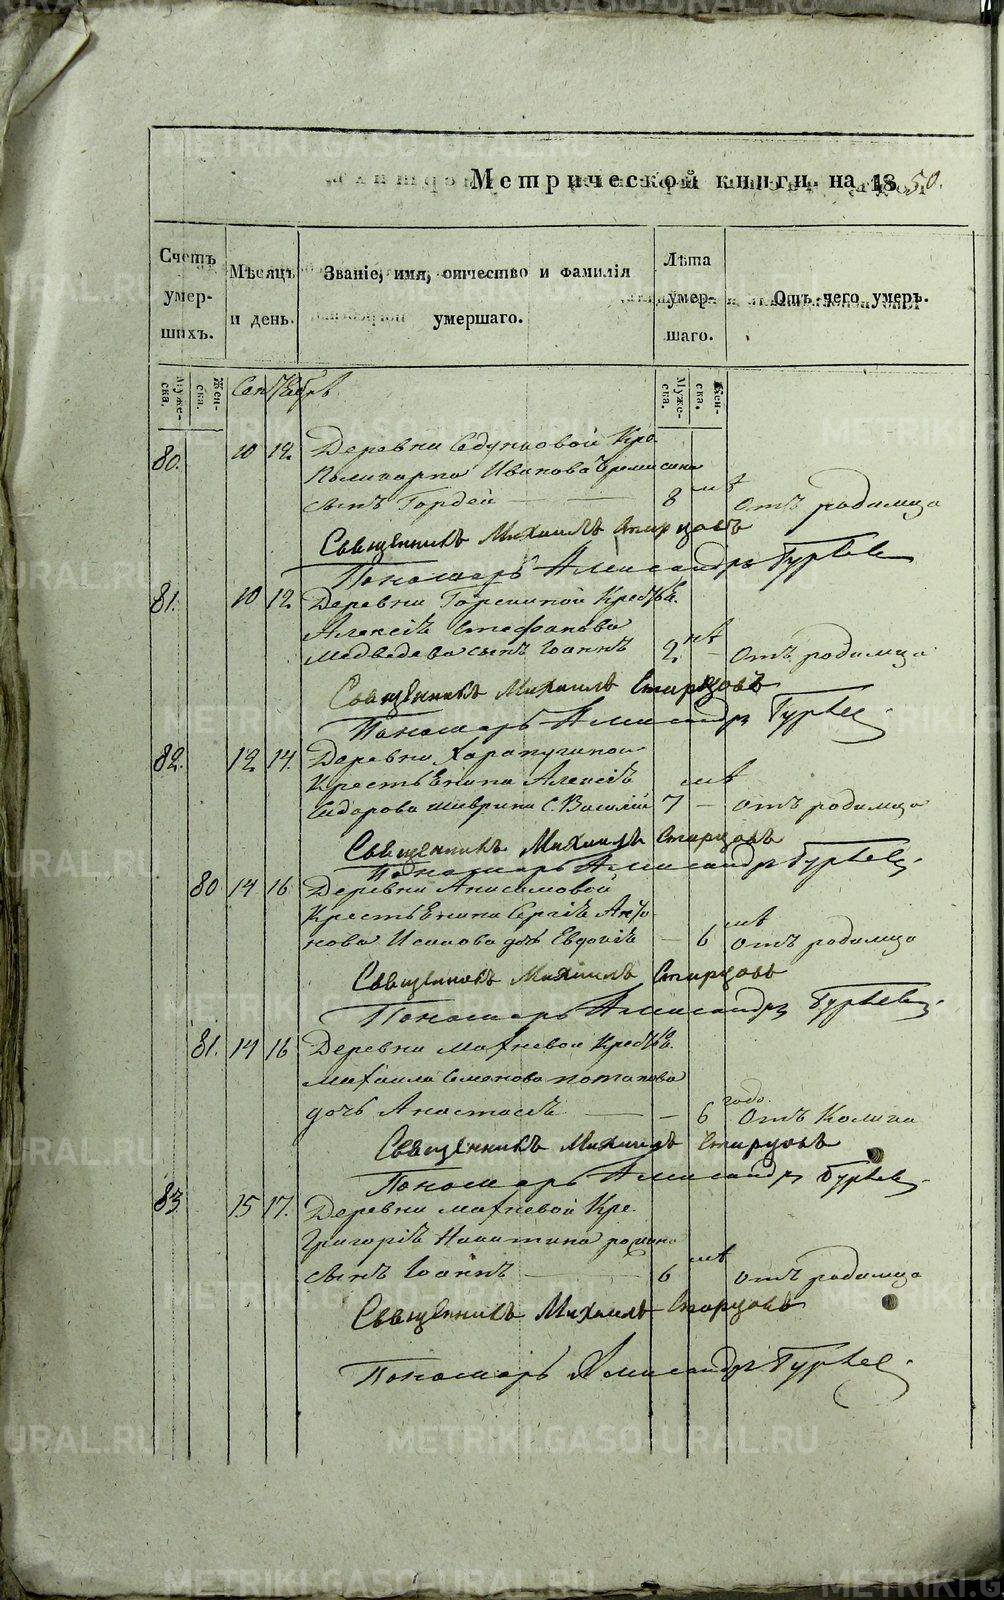 METRIKI.GASO-URAL.RU
Метрической книги на 1850.
Счетъ умершихъ.
Мѣсяцъ и день.
Званіе, имя, отчество и фамилія умершаго.
Лѣта умершаго.
Отъ чего умеръ.
Мужеска.
Женска.
Сентябрь
Мужеска.
Женска.
80. 10 12 Деревни Кре.
Поликарпа Иванова
сынъ Гордей — — 8 лѣ отъ родимца
Священникъ Михаилъ Старцовъ
Пономарь Александръ Гурьев
81. 10 12 Деревни Крестья.
Алексѣя Стефанова
Медведева сынъ Іоаннъ 2 лѣ — отъ родимца
Священникъ Михаилъ Старцовъ
Пономарь Александръ Гурьев
82. 12 14. Деревни
Крестьянина Алексѣя
Сидорова С. Василій 7 лѣ — отъ родимца
Священникъ Михаилъ Старцовъ
Пономарь Александръ Гурьев
80 14 16 Деревни Анисимовой
Крестьянина Сергѣя Анто
нова Исакова дочь Евдокія — 6 лѣ отъ родимца
Священникъ Михаилъ Старцовъ
Пономарь Александръ Гурьев
81. 14 16 Деревни Махневой Крестья.
Михаила Семенова Потапова
дочь Анастасія — — 6 годо. отъ
Священникъ Михаилъ Старцовъ
Пономарь Александръ Гурьев
83. 15 17. Деревни Махневой Кре.
Григорія Никитина
сынъ Іоаннъ — 6 лѣ отъ родимца
Священникъ Михаилъ Старцовъ
Пономарь Александръ Гурьев